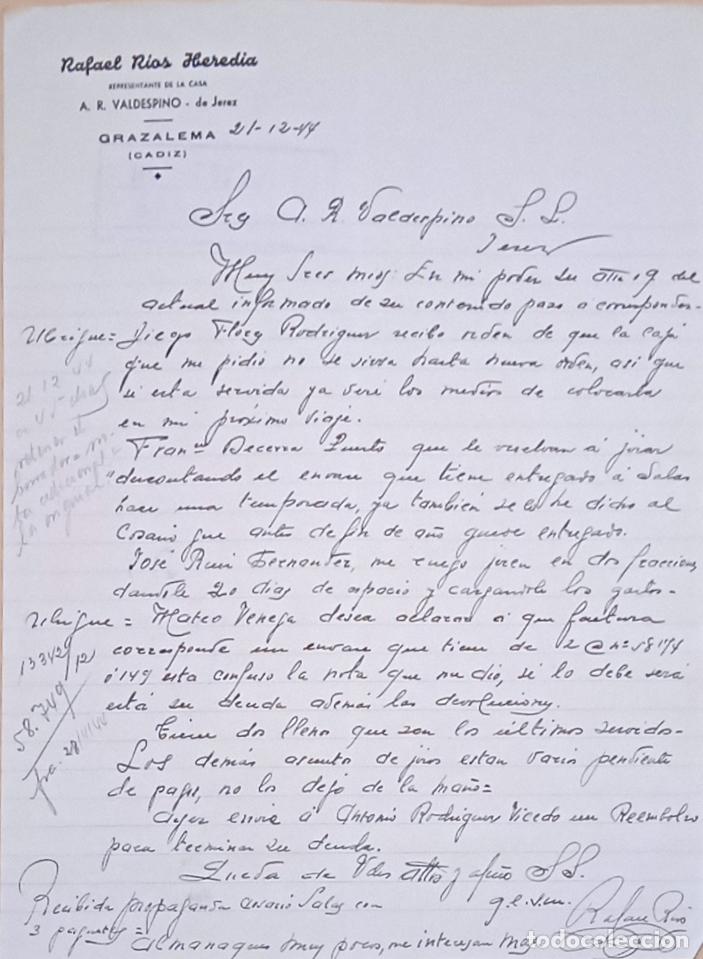 Rafael Ríos Heredia
REPRESENTANTE DE LA CASA
A. R. VALDESPINO - de Jerez
GRAZALEMA 21-12-44
(CADIZ)
A. R. Valdespino S. L.
Jerez
Muy Sres mios: En mi poder su atta 19 del
actual informado de su contenido paso a corresponder.
Ubrique = Diego Flores Rodriguez recibo orden de que la caja
que me pidió no se sirva hasta nueva orden, asi que
si esta servida ya veré los medios de colocarla
en mi próximo viaje.
21 12 44
a 45 dias
Franco Becerra Puerto que le vuelvan á jirar
descontando el envase que tiene entregado á Salas
la original
hace una temporada, ya también se lo he dicho al
Cosario que antes de fin de año quede entregado.
José Ruiz Fernandez, me ruega jiren en dos fracciones
dandole 20 dias de espacio y cargandole los gastos.
Ubrique = Mateo Venega desea aclaren a que factura
13342 9/12
corresponde un envase que tiene de 2 @ nº 58174
58.749
ó 149 esta confuso la nota que me dió, si lo debe será
está su deuda además las devoluciones.
fra. 28/4/44
Tiene dos llenos que son los últimos servidos.
Los demás asunto de jiros estan varios pendiente
de pago, no los dejo de la mano =
Ayer envié á Antonio Rodriguez Vicedo un Reembolso
para terminar su deuda.
Queda de Vdes atto y afmo S.S.
q.e.s.m.
Rafael Rios
Recibida propaganda cosario Salas con
3 paquetes = Almanaques muy pocos, me interesan mas
todocoleccion